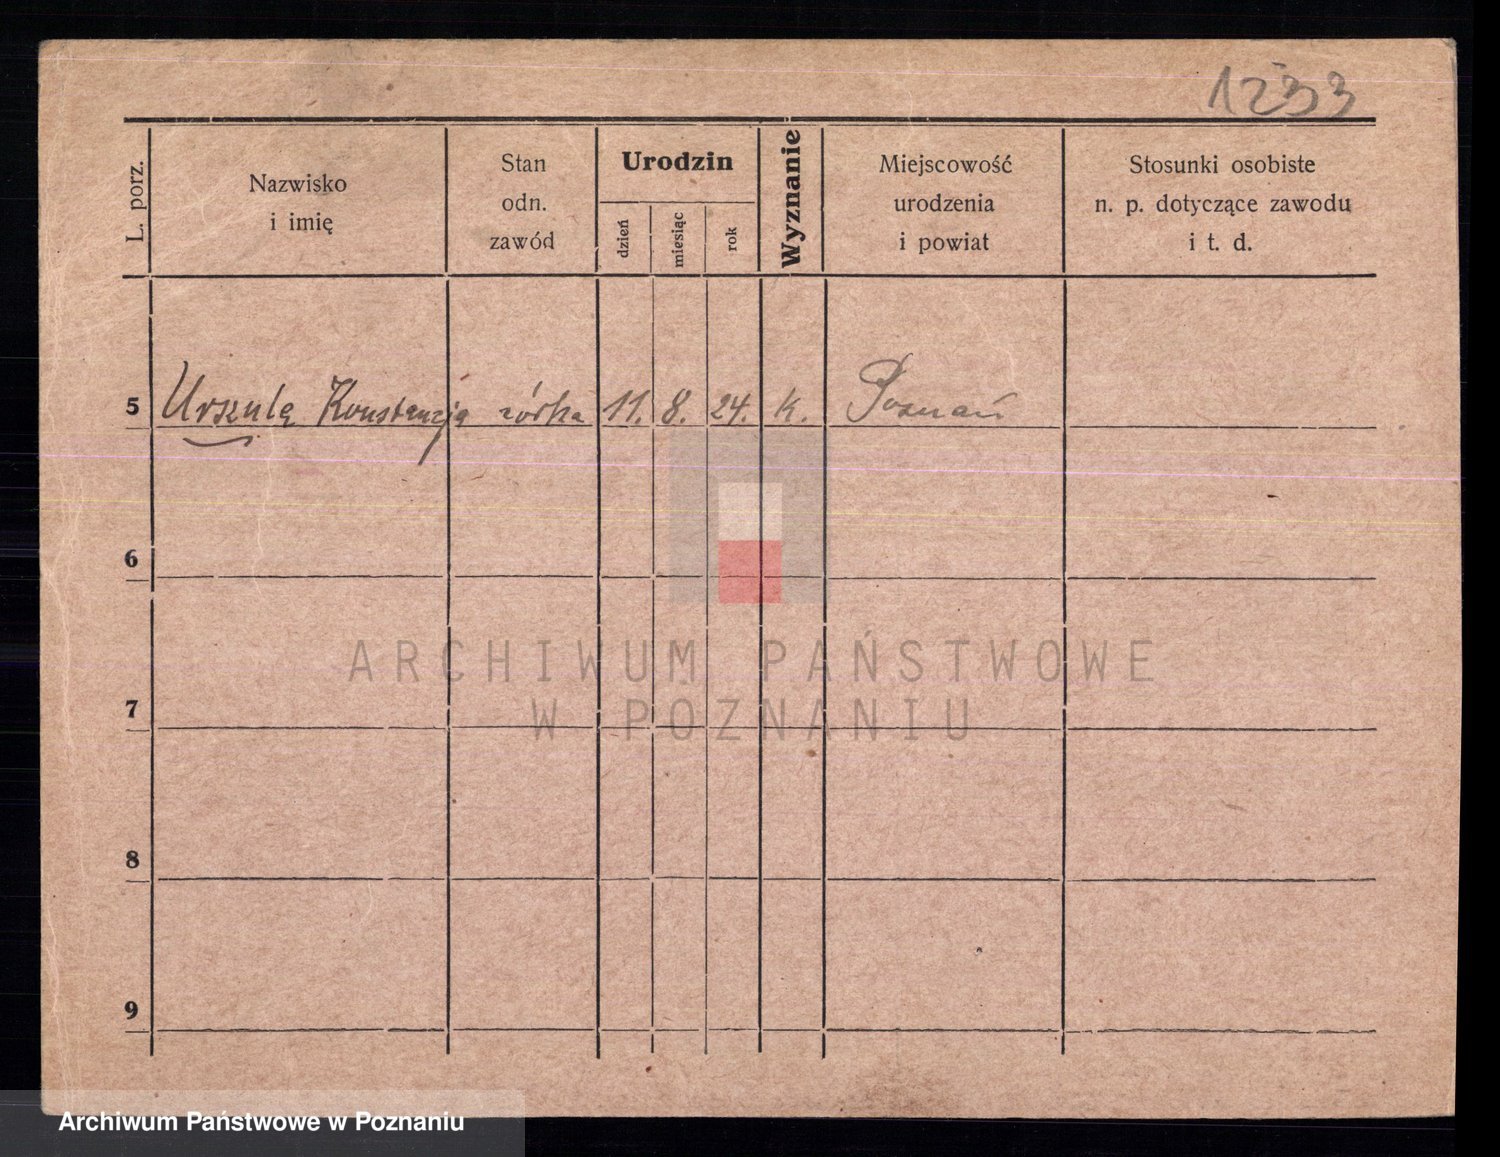 1233
L. porz.
Nazwisko
i imię
Stan
odn.
zawód
Urodzin
dzień
miesiąc
rok
Wyznanie
Miejscowość
urodzenia
i powiat
Stosunki osobiste
n. p. dotyczące zawodu
i t. d.
5 Urszula Konstancja córka 11. 8. 24. k. Poznań
6
ARCHIWUM PAŃSTWOWE
7
W POZNANIU
8
9
Archiwum Państwowe w Poznaniu